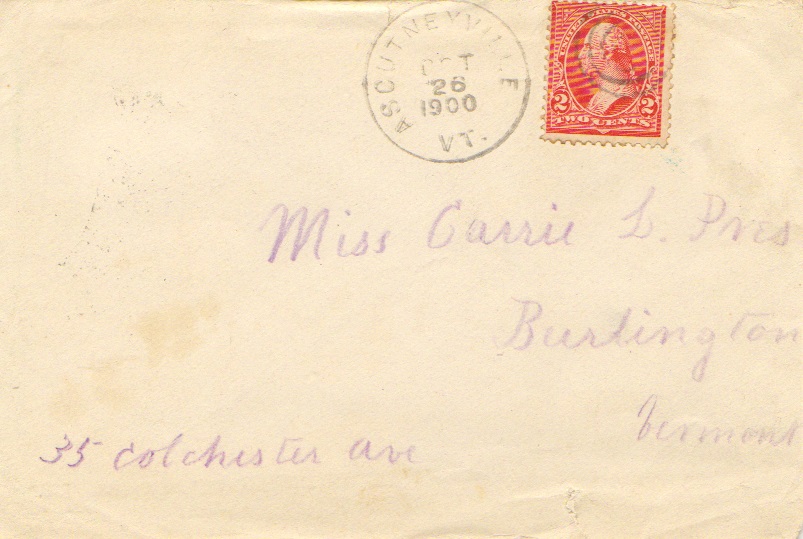 ASCUTNEYVILLE
OCT
26
1900
VT.
UNITED STATES POSTAGE
2 2
TWO CENTS
Miss Carrie L. Pres
Burlington
Vermont
35 Colchester Ave